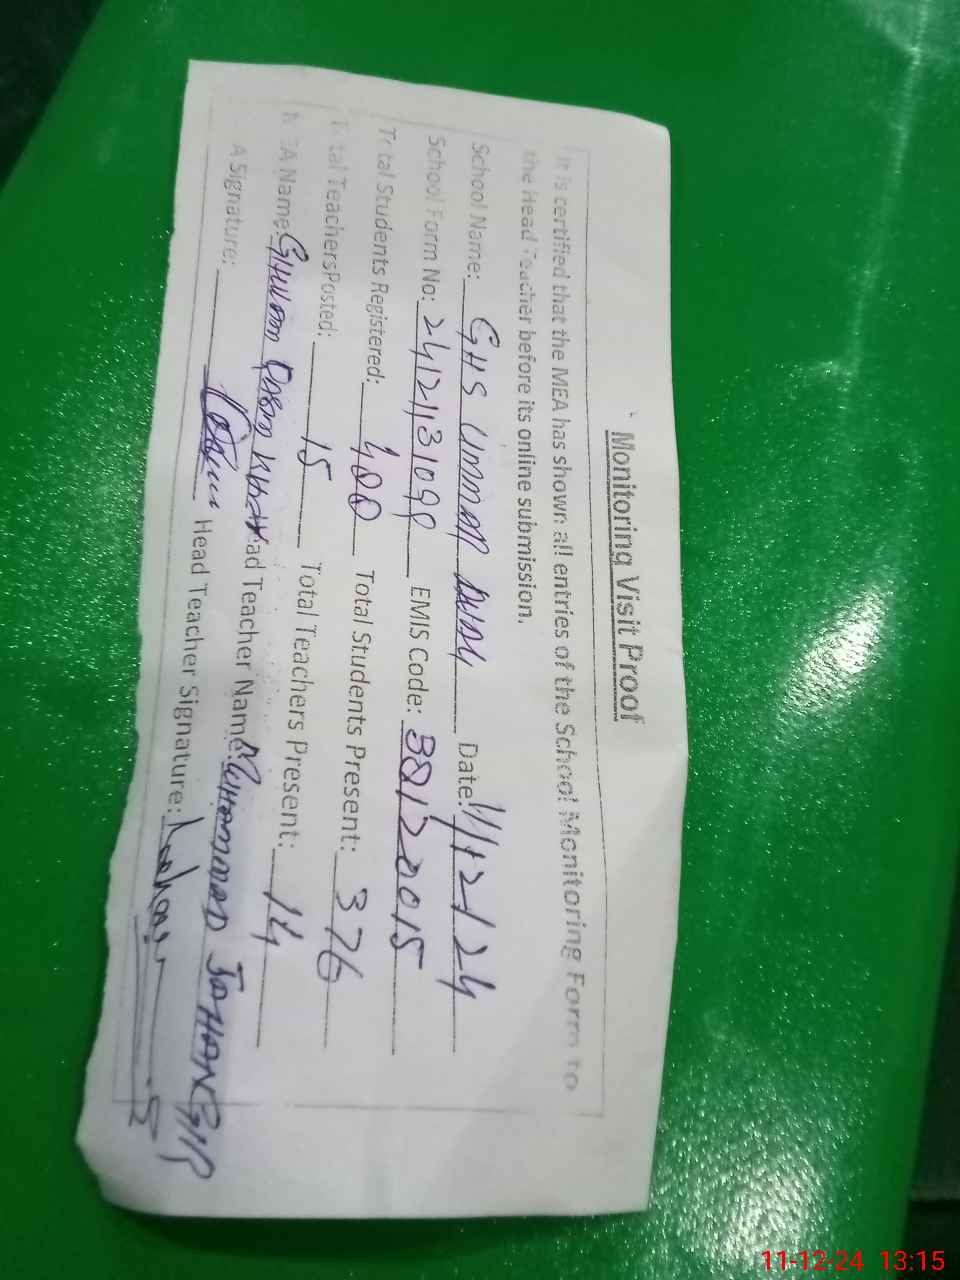 Monitoring Visit Proof
It is certified that the MEA has shown all entries of the School Monitoring Form to
the Head Teacher before its online submission.
School Name: GHS UMMAR Date: 11/12/24
School Form No: 2412113109 EMIS Code: 38120015
Total Students Registered: 400 Total Students Present: 376
Total Teachers Posted: 15 Total Teachers Present: 14
MEA Name: GHULAM QASIM Head Teacher Name: MUHAMMAD JAHANGIR
A Signature: Head Teacher Signature:
11-12-24 13:15